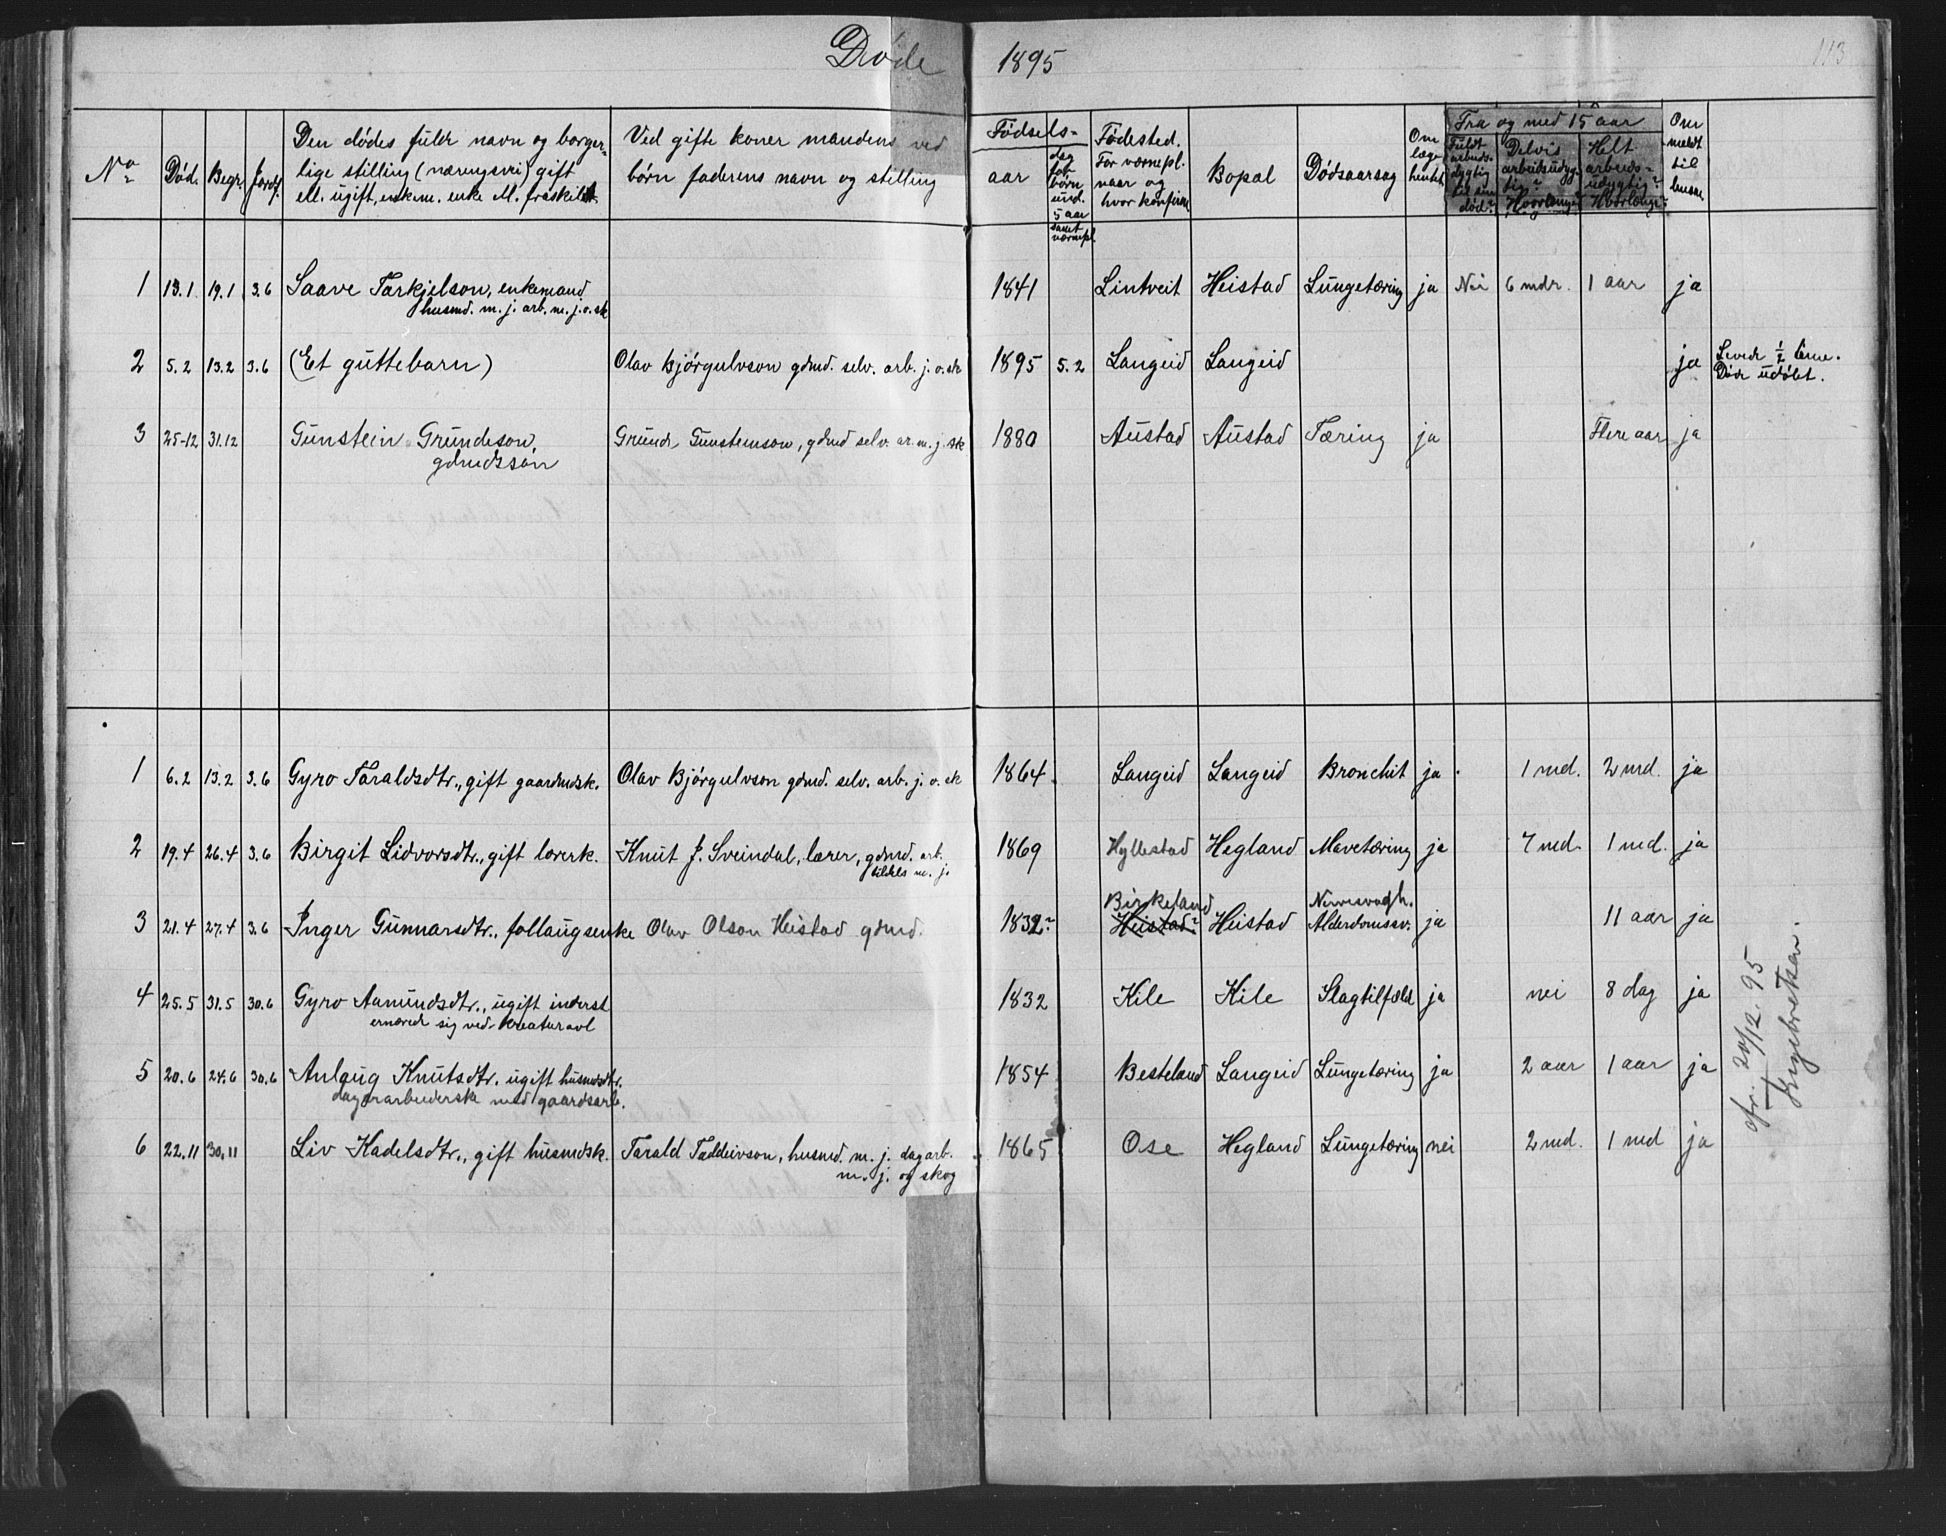 Døde 1895
113
No
Død.
Begr.
Jordf.
Den dødes fulde navn og borger-
lige stilling (næringsvei) gift
ell. ugift, enkem. enke ell. fraskilt
Ved gifte koner mandens ved
børn faderens navn og stilling
Fødsels-
aar
dag
for
børn
und.
5 aar
samt
værnepl.
Fødested.
For værnepl.
naar og
hvor konfirm.
Bopæl
Dødsaarsag
Om
læge
hentet
Fra og med 15 aar
Fuldt
arbeids-
dygtig
til sin
død?
Delvis
arbeidsudyg-
tig?
Hvorlenge?
Helt
arbeids-
udygtig?
Hvorlenge?
Om
meldt
til
lensm.
1 13.1 19.1 3.6 Saave Tarkjelson, enkemand 1841 Lintveit Heistad Lungetæring ja Nei 6 mdr. 1 aar ja
husmd. m. j. arb. m. j. o. sk
2 5.2 13.2 3.6 (Et guttebarn) Olav Bjórgulvson gdmd. selv. arb. j. o. sk 1895 5.2 Langeid Langeid ja Levede ½ time.
Døde udøbt.
3 25-12 31.12 Gunstein Grundeson, Grunde Gunsteinson, gdmd selv. ar. m. j. sk 1880 Austad Austad Tæring ja Flere aar ja
gdmdssøn
1 6.2 13.2 3.6 Gyro Taraldsdtr., gift gaardmdsk. Olav Bjórgulvson gdmd. selv. arb. j. o. sk 1864. Langeid Langeid Bronchit ja 1 md. 2 md. ja
2 19.4 26.4 3.6 Birgit Lidvorsdtr., gift lærerk. Knut J. Sveindal, lærer, gdmd. arb. 1869 Hyllestad Hegland Mavetæring ja 7 md. 1 md. ja
tildels m. j.
Birkeland Nervesvagh.
3 21.4 27.4 3.6 Inger Gunnarsdtr., follaugsenke Olav Olson Heistad gdmd. 1832? Heistad? Heistad Alderdomssv. ja 11 aar ja
4 25.5 31.5 30.6 Gyro Aamundsdtr., ugift inderst 1832 Kile Kile Slagtilfæld ja nei 8 dag ja
ernærede sig ved kreaturavl
5 20.6 24.6 30.6 Anlaug Knutsdtr. ugift husmdsdtr. 1854 Besteland Langeid Lungetæring ja 2 aar 1 aar ja
dagerarbeiderske med gaardsarb.
6 22.11 30.11 Liv Kadelsdtr., gift husmdsk. Tarald Taddeivson, husmd. m. j. dagarb. 1865 Ose Hegland Lungetæring nei 2 md. 1 md ja
m. j. og skog
20/12. 95
Engebretsen.